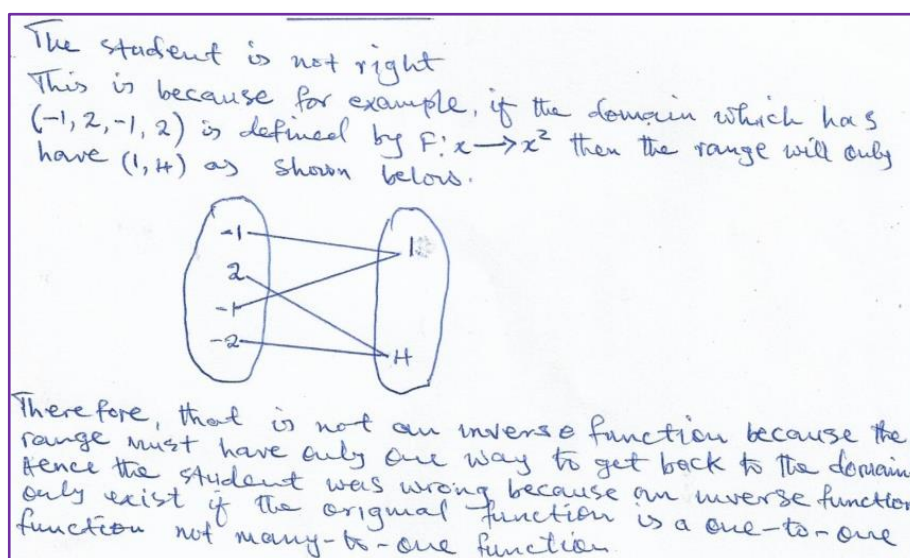 The student is not right
This is because for example, if the domain which has
(-1, 2, -1, 2) is defined by F: x → x² then the range will only
have (1, 4) as shown below.
-1
2
-1
-2
1
4
Therefore, that is not an inverse function because the
range must have only one way to get back to the domain
Hence the student was wrong because an inverse function
only exist if the original function is a one-to-one
function not many-to-one function.